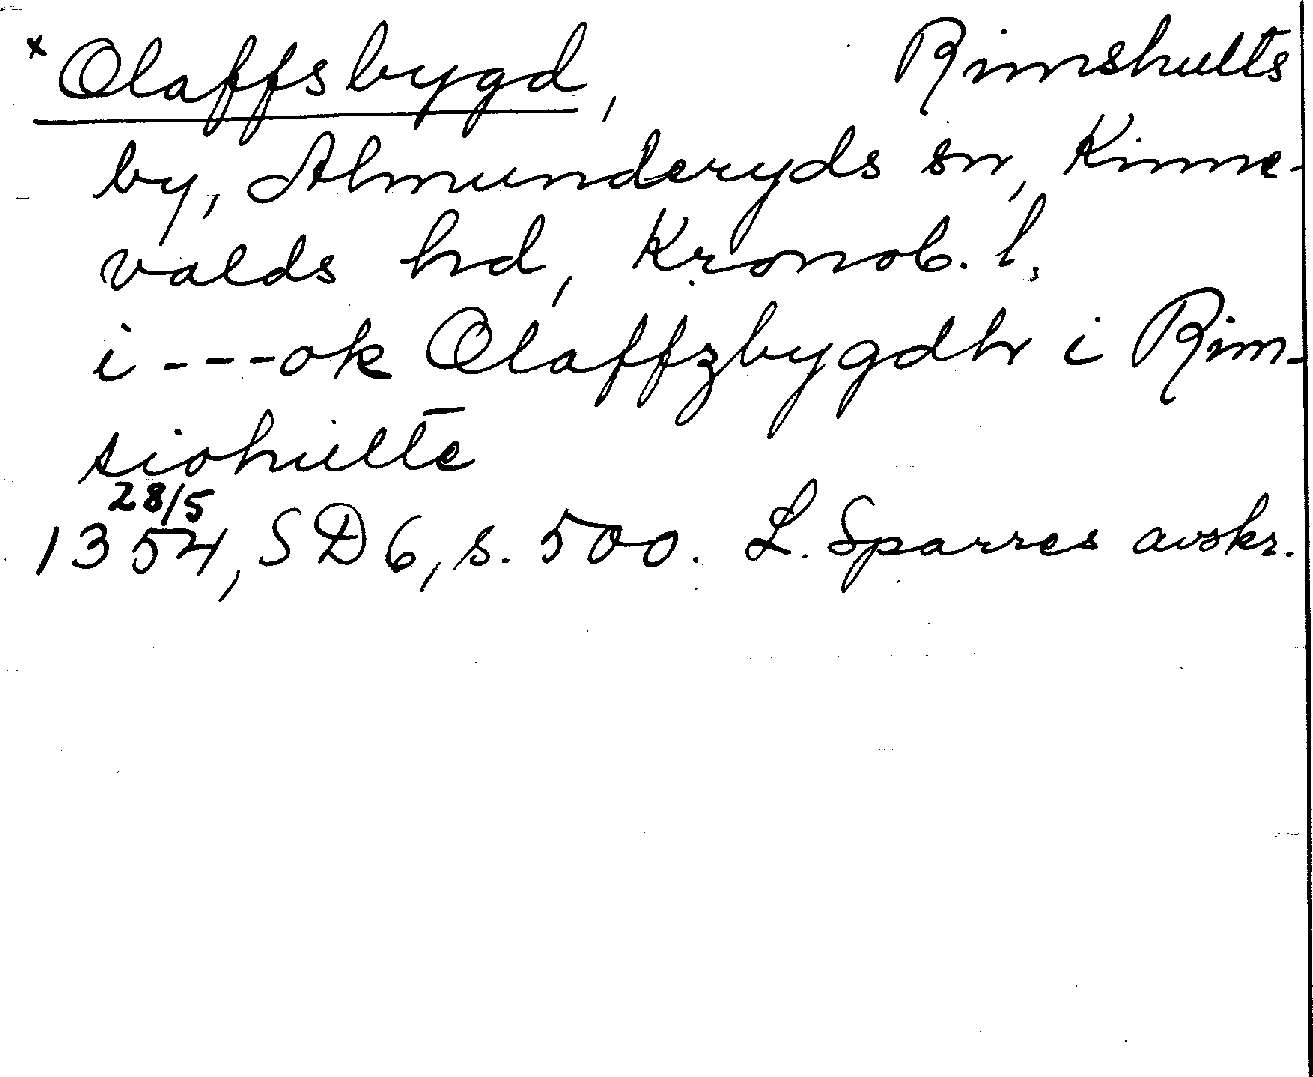 x Olaffsbygd, Rimshults
by, Almunderyds sn, Kinne-
valds hd, Kronob. l.
i - - - ok Olaffzbygdh i Rim-
siohulte
28/5
1354, SD 6, s. 500. L. Sparres avskr.